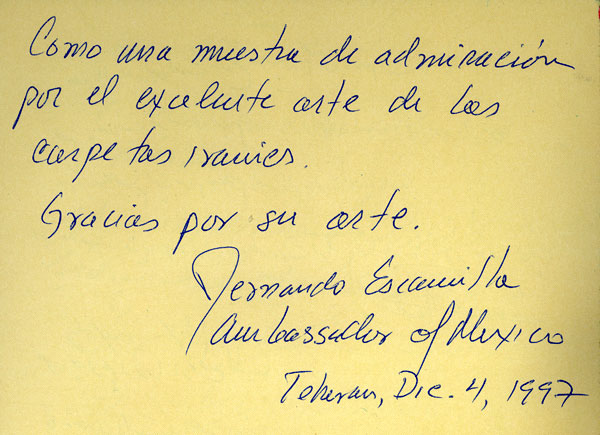 Como una muestra de admiración
por el excelente arte de las
carpetas iranies.
Gracias por su arte.
Fernando Escamilla
Ambassador of Mexico
Teheran, Dic. 4, 1997